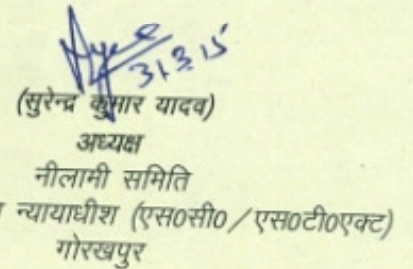 31.3.15
(सुरेन्द्र कुमार यादव)
अध्यक्ष
नीलामी समिति
न्यायाधीश (एस0सी0/एस0टी0एक्ट)
गोरखपुर